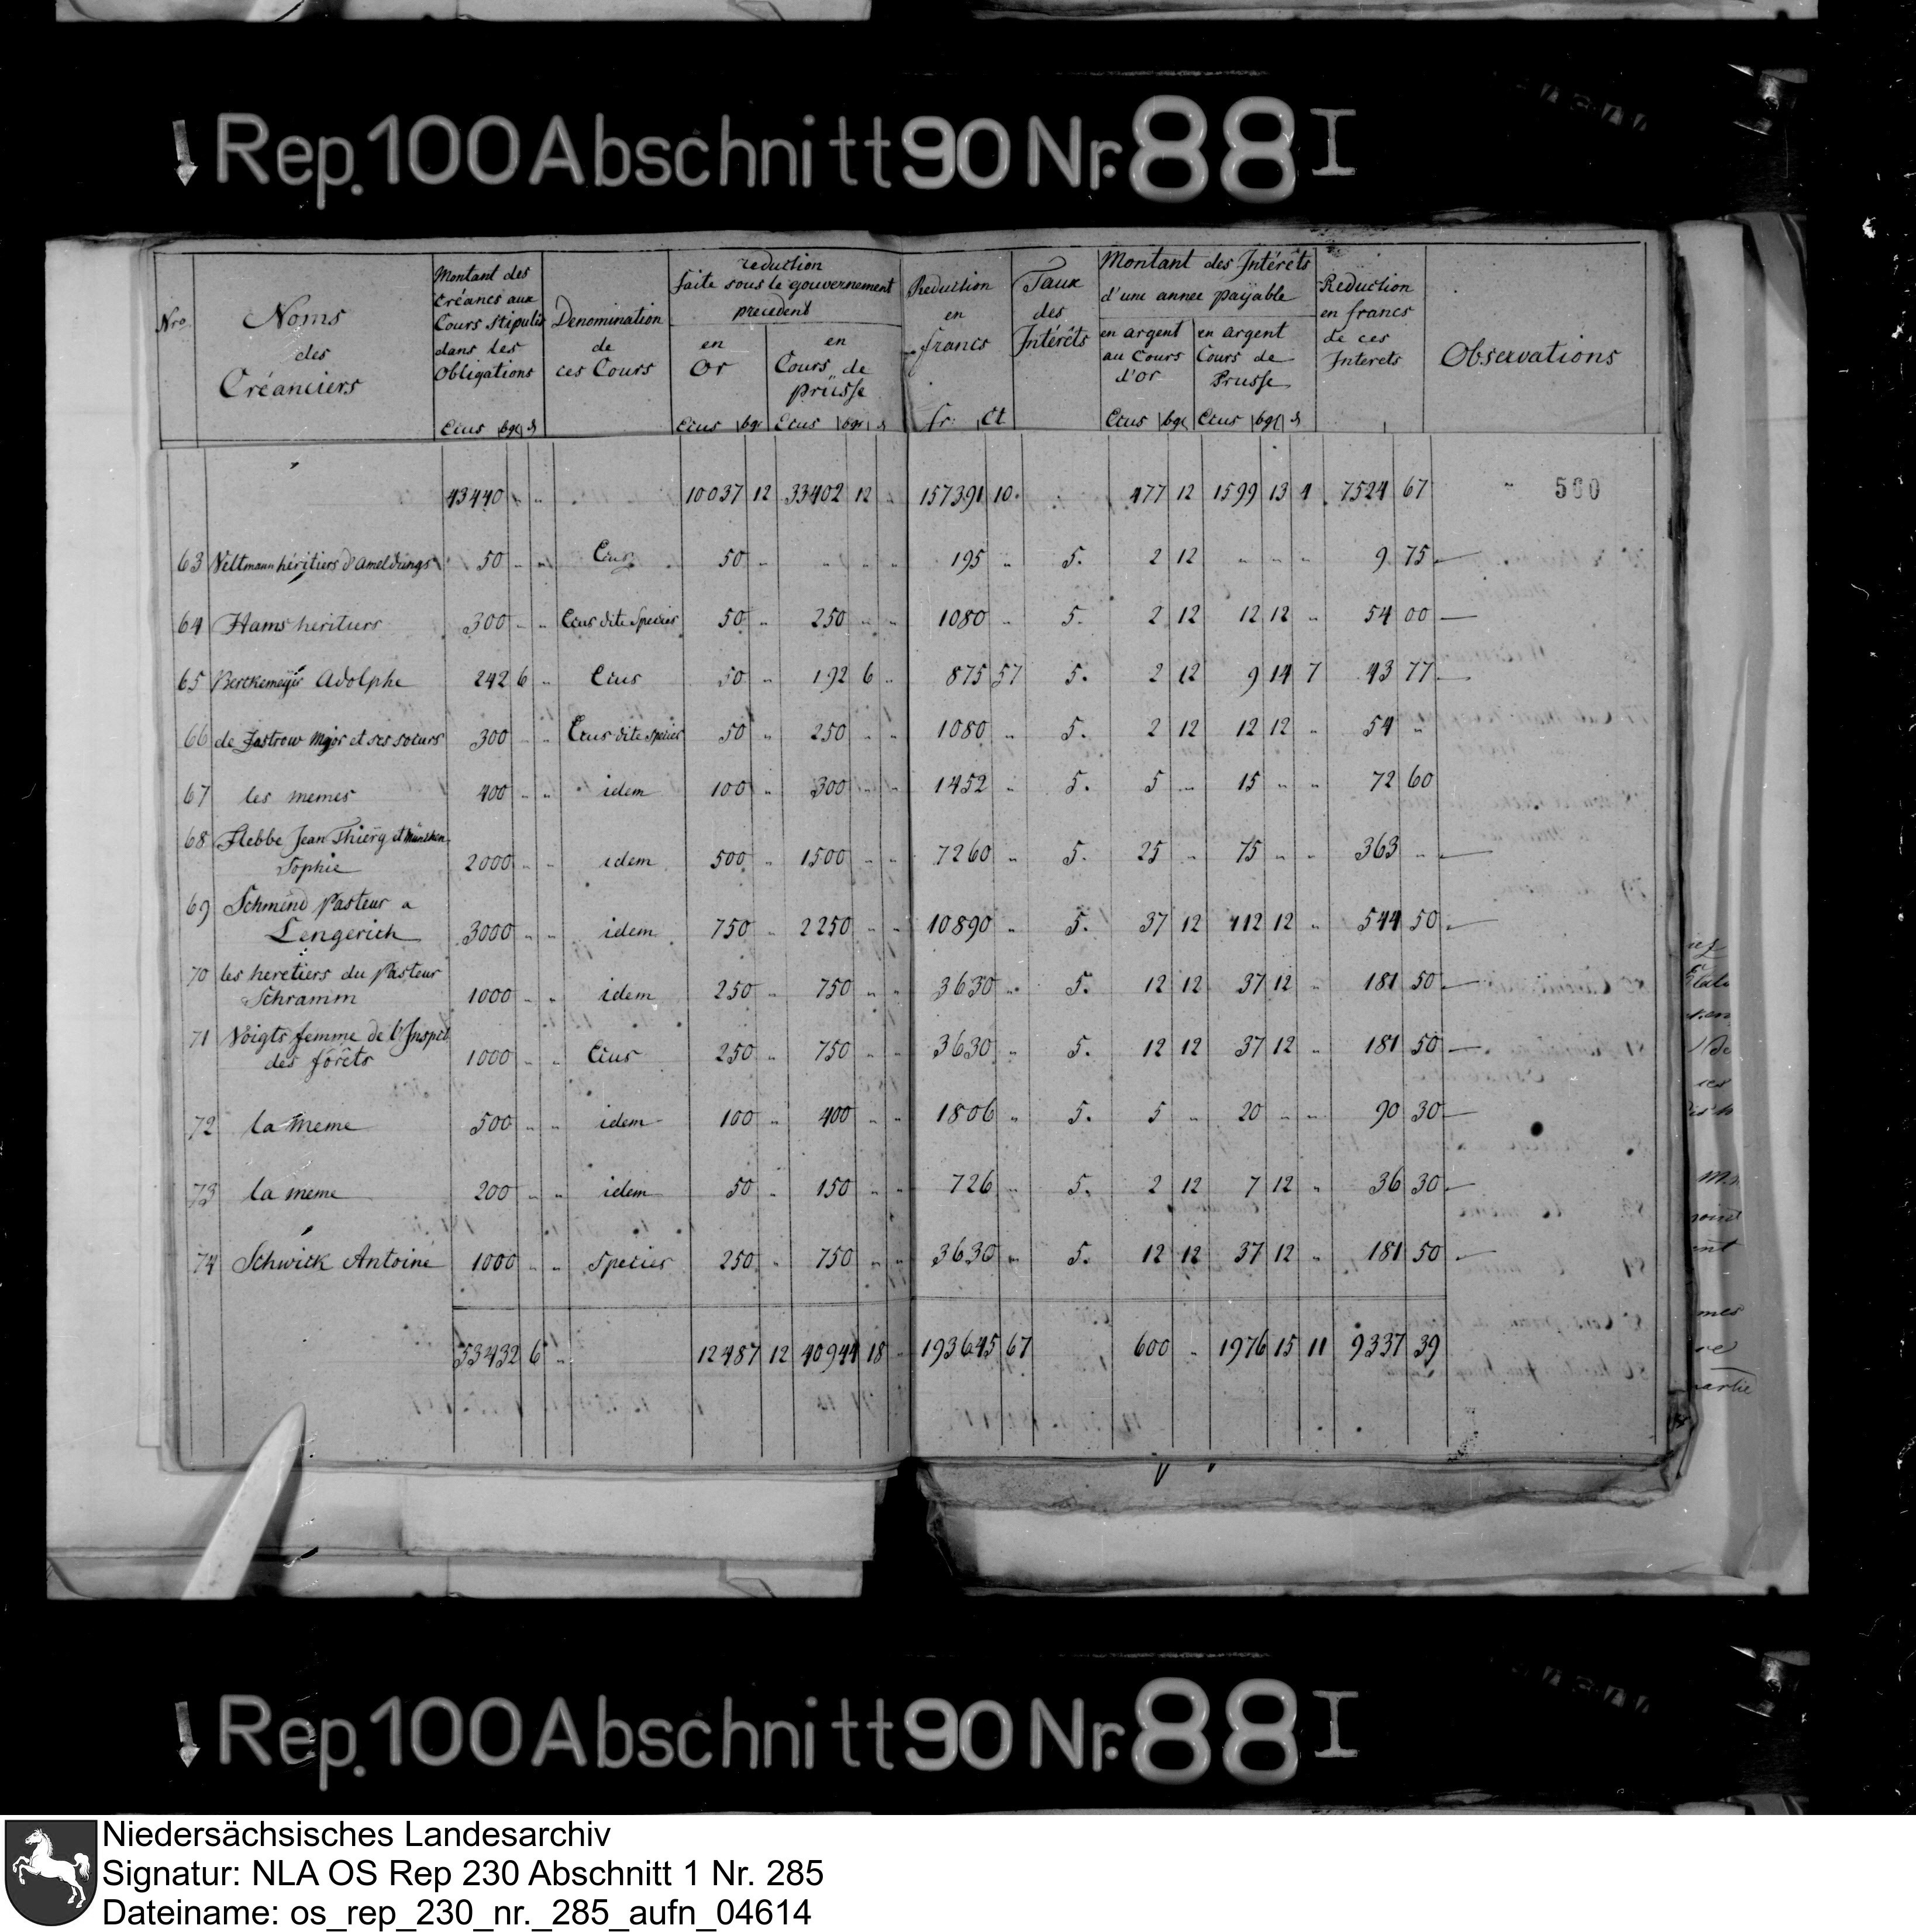 Rep. 100 Abschnitt 90 Nr. 88 I
Nro. | Noms des Créanciers | Montant des Créances aux Cours stipulés dans les Obligations | Denomination de ces Cours | reduction faite sous le gouvernement precedent | Reduction en francs | Taux des Intérêts | Montant des Intérêts d'une annee payable | Reduction en francs de ces Interets | Observations
en Or | en Cours de prüsse | en argent au Cours d'or | en argent Cours de Prusse
Ecus bgl d | Ecus bgl | Ecus bgl d | fr. Ct | Ecus bgl | Ecus bgl d
43440 " " | 10037 12 | 33402 12 " | 157391 10. | 477 12 | 1599 13 4 | 7524 67 | " 560
63 Veltmann héritiers d'Ameldungs 50 " " Ecus 50 " " " " 195 " 5. 2 12 " " " 9 75
64 Hams heritiers 300 " " Ecus dite Species 50 " 250 " " 1080 " 5. 2 12 12 12 " 54 00
65 Berckemeyer Adolphe 242 6 " Ecus 50 " 192 6 " 875 57 5. 2 12 9 14 7 43 77
66 de Zastrow Major et ses soeurs 300 " " Ecus dite Species 50 " 250 " " 1080 " 5. 2 12 12 12 " 54 "
67 les memes 400 " " idem 100 " 300 " " 1452 " 5. 5 " 15 " " 72 60
68 Flebbe Jean Thiery et
Sophie 2000 " " idem 500 " 1500 " " 7260 " 5. 25 " 75 " " 363 "
69 Schmind Pasteur a
Lengerich 3000 " " idem 750 " 2250 " " 10890 " 5. 37 12 112 12 " 544 50
70 les heretiers du Pasteur
Schramm 1000 " " idem 250 " 750 " " 3630 " 5. 12 12 37 12 " 181 50
71 Voigts femme de l'Inspect
des forêts 1000 " " Ecus 250 " 750 " " 3630 " 5. 12 12 37 12 " 181 50
72 la meme 500 " " idem 100 " 400 " " 1806 " 5. 5 " 20 " " 90 30
73 la meme 200 " " idem 50 " 150 " " 726 " 5. 2 12 7 12 " 36 30
74 Schwick Antoine 1000 " " Species 250 " 750 " " 3630 " 5. 12 12 37 12 " 181 50
53432 6 " 12487 12 40944 18 " 193645 67 600 " 1976 15 11 9337 39
Rep. 100 Abschnitt 90 Nr. 88 I
Niedersächsisches Landesarchiv
Signatur: NLA OS Rep 230 Abschnitt 1 Nr. 285
Dateiname: os_rep_230_nr._285_aufn_04614